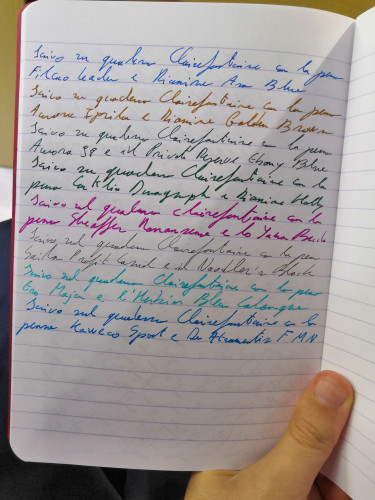 Scrivo su quaderno Clairefontaine con la penna
Filcao Leader e Diamine Asa Blue
Scrivo su quaderno Clairefontaine con la penna
Aurora Ipsilon e Diamine Golden Brown
Scrivo su quaderno Clairefontaine con la penna
Aurora 98 e il Private Reserve Ebony Blue
Scrivo su quaderno Clairefontaine con la
penna Conklin Duragraph e Diamine Holly
Scrivo sul quaderno Clairefontaine con la
penna Sheaffer e lo Yama Budo
Scrivo sul quaderno Clairefontaine con la penna
Sailor Profit Casual e il Noodler's Black
Scrivo sul quaderno Clairefontaine con la penna
e l'Herbin Bleu Calanque
Scrivo sul quaderno Clairefontaine con la
penna Kaweco Sport e De Atramentis FMN